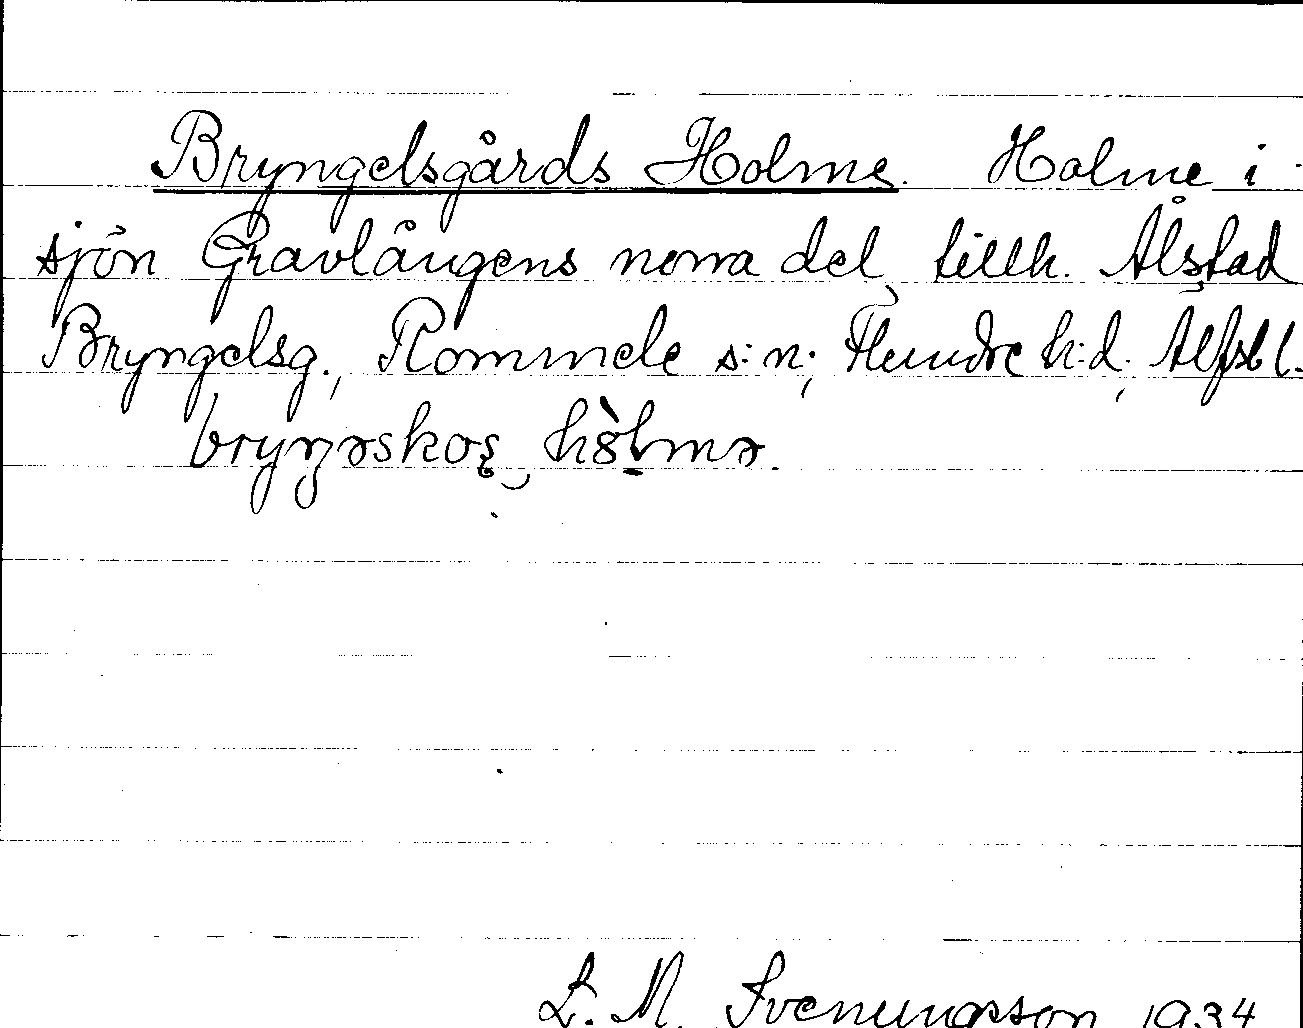 Bryngelsgårds Holme. Holme i
sjön Gravlångens norra del, tillh. Ålstad
Bryngelsg., Rommele s:n; Flundre h:d, Älfsb l.
bryŋəskoʂ hòlmə.
L. M. Svenungsson 1934